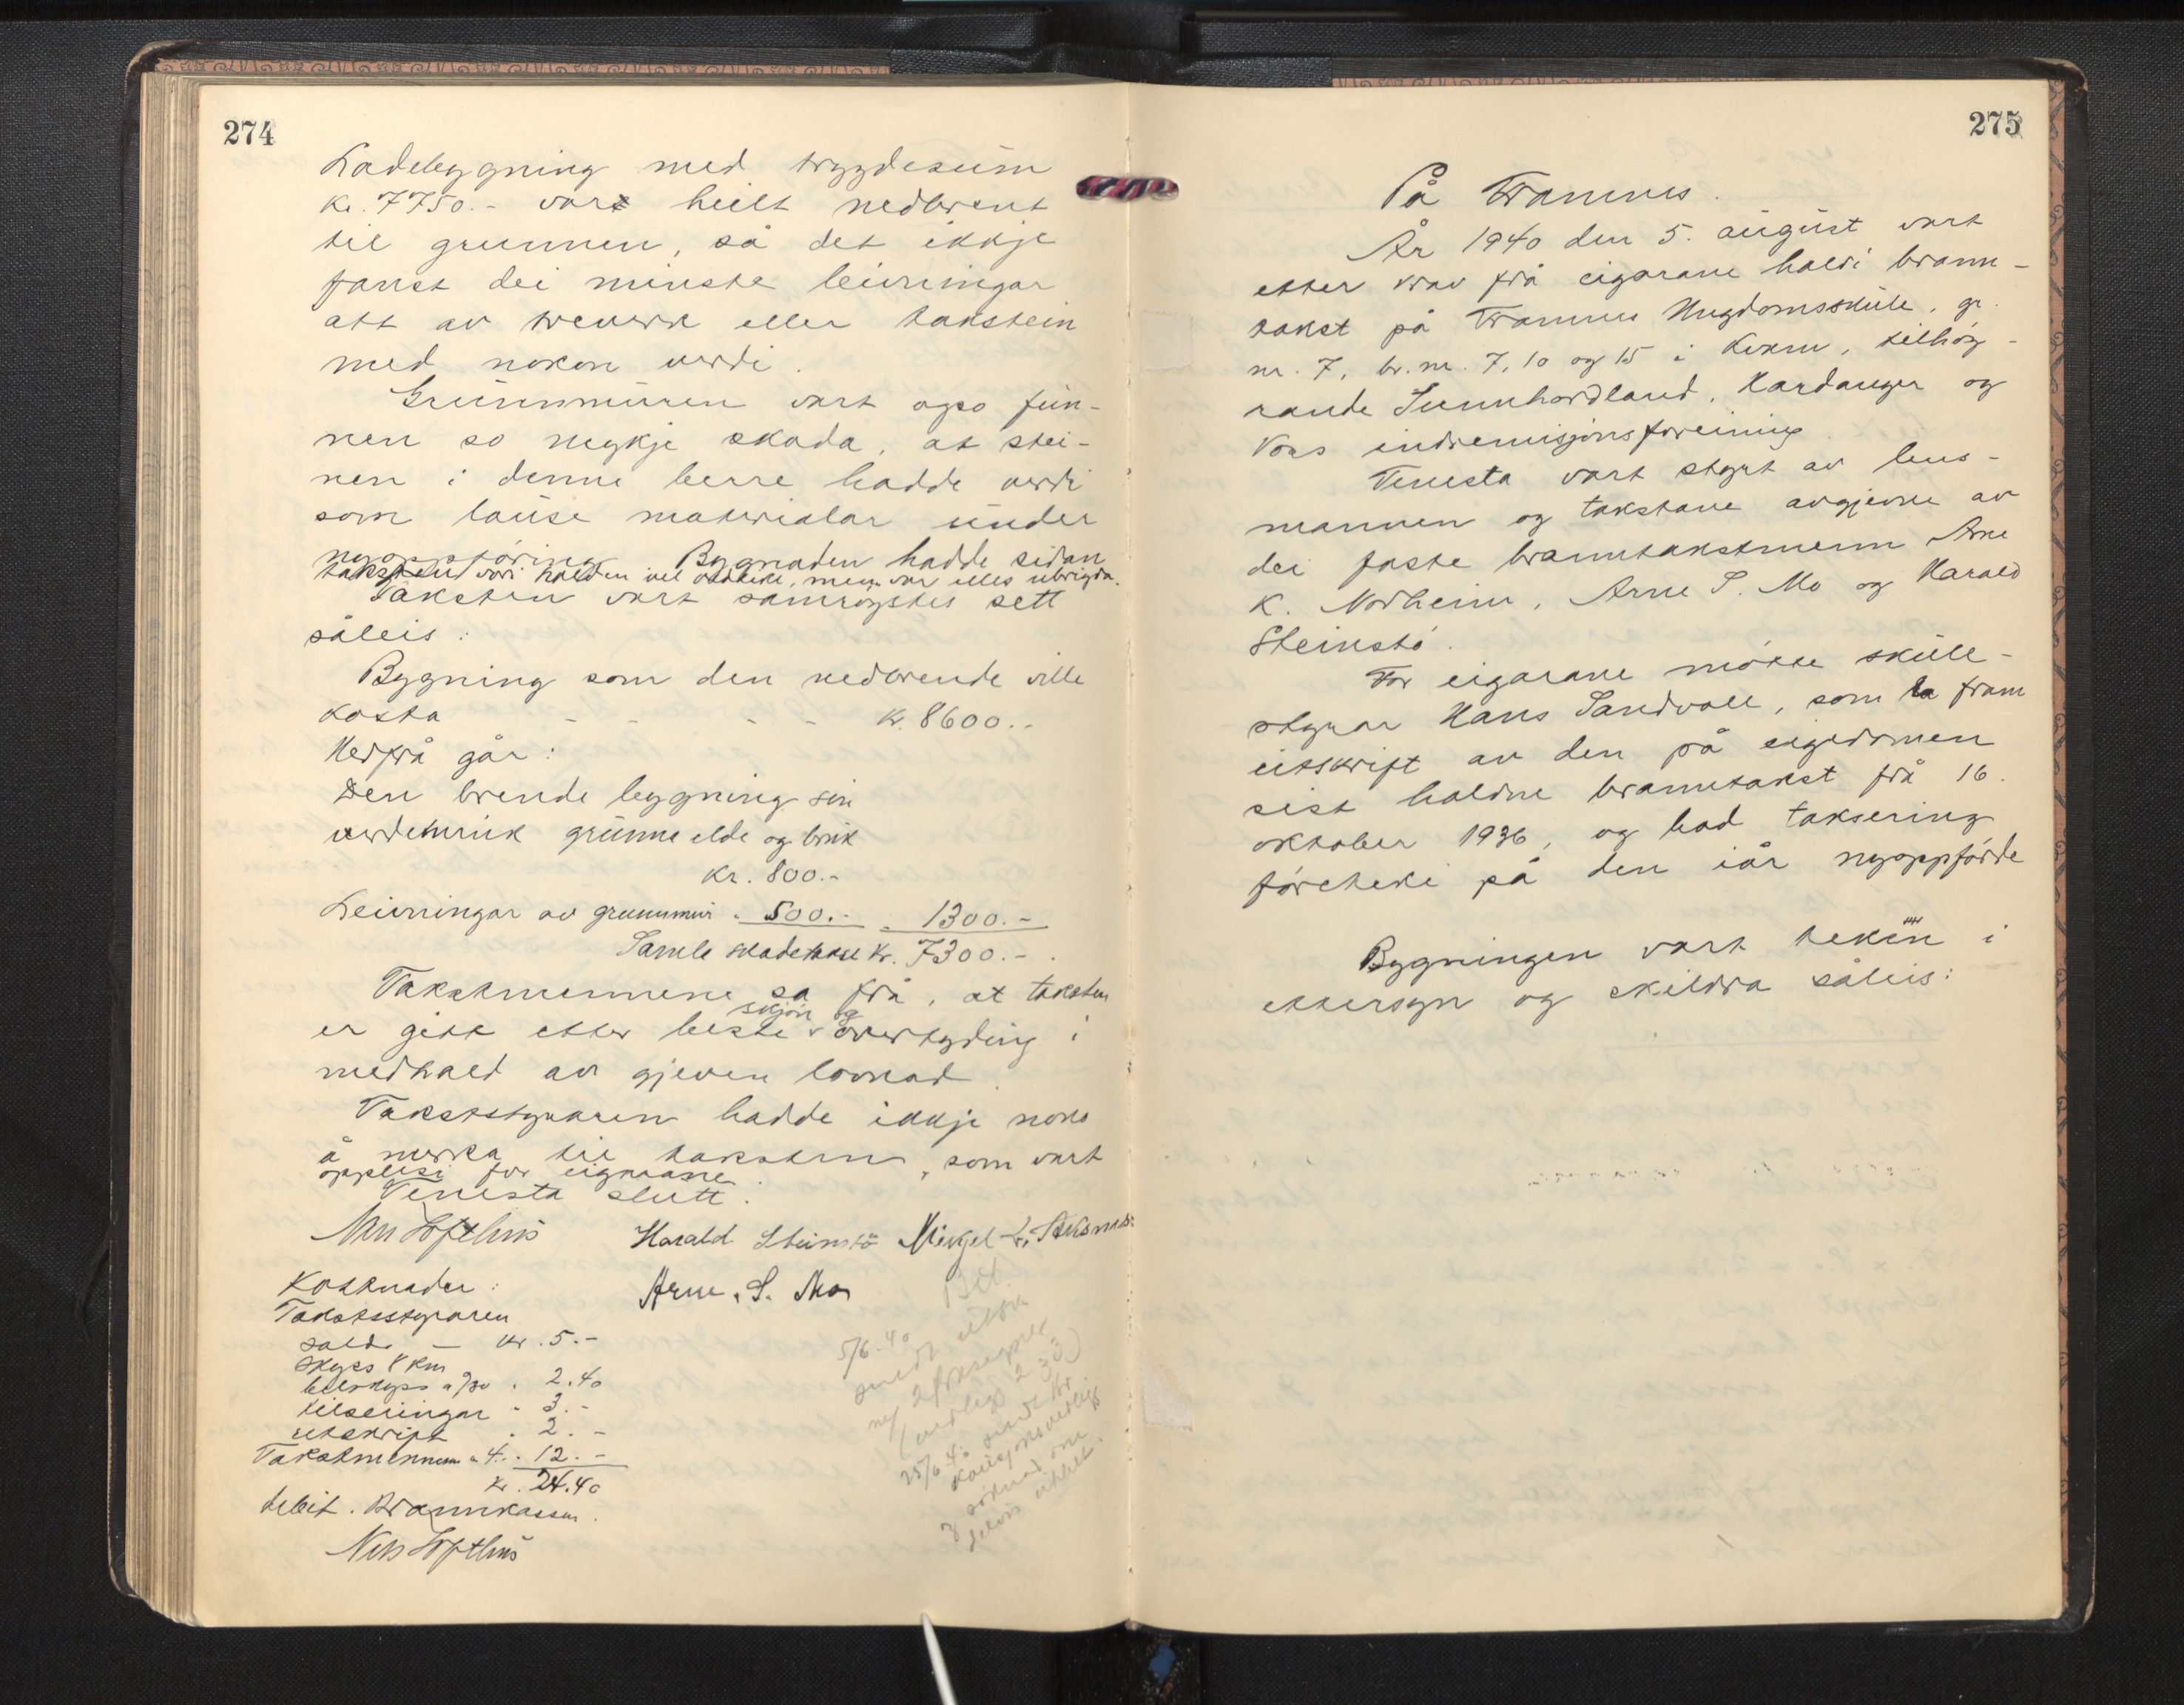 274
Ladebygning med trygdesum
kr. 7750.- vart heilt nedbrent
til grunnen, så det ikkje
fanst dei minste leivningar
att av treverk eller takstein
med nokon verdi.
Grunnmuren vart ogso fun-
nen so mykje skada, at stei-
nen i denne berre hadde verdi
som lause materialar under
nyoppföring. Bygnaden hadde sidan
taksten vori halden vel vedlike, men var elles ubrigda.
Taksten vart samröystes sett
såleis:
Bygning som den nedbrende ville
kosta - - - - kr. 8600.-
Herfrå går:
Den brende bygning sin
verdemink grunna elde og bruk
kr. 800.-
Leivningar av grunnmur " 500.- " 1300.-
Samla skadetakst kr. 7300.-.
Takstmennene sa frå, at taksten
er gitt etter beste skjön og overtyding i
medhald av gjeven lovnad.
Takststyraren hadde ikkje noko
å merka til taksten, som vart
opplesi for eigarane.
Tenesta slutt.
Nils Lofthus Harald Steinstö Mikjel Aksnes
Arne S. Mo
Kostnader:
Takststyraren
sald. — kr. 5.-
skyss 8 km
bilskyss a /30 " 2.40
tilseiingar " 3.-
utskrift " 2.-
Takstmennene a 4.- " 12.-
kr. 24.40
debit. Brannkassen.
Nils Lofthus
5/6-40
sendt utskr.
25/6-40 sendt
275
På Framnes.
År 1940 den 5. august vart
etter krav frå eigarane haldi brann-
takst på Framnes Ungdomsskule, gr.
nr. 7, br.nr. 7, 10 og 15 i Kvam, tilhöy-
rande Sunnhordland, Hardanger og
Voss indremisjonsforeining.
Tenesta vart styrt av lens-
mannen og takstane avgjevne av
dei faste branntakstmenn Arne
K. Norheim, Arne S. Mo og Harald
Steinstö.
For eigarane mötte skule-
styrar Hans Sandvoll, som la fram
utskrift av den på eigedomen
sist haldne branntakst frå 16.
oktober 1936, og bad taksering
företeki på den iår nyoppförde
Bygningen vart tekin i
ettersyn og skildra såleis: